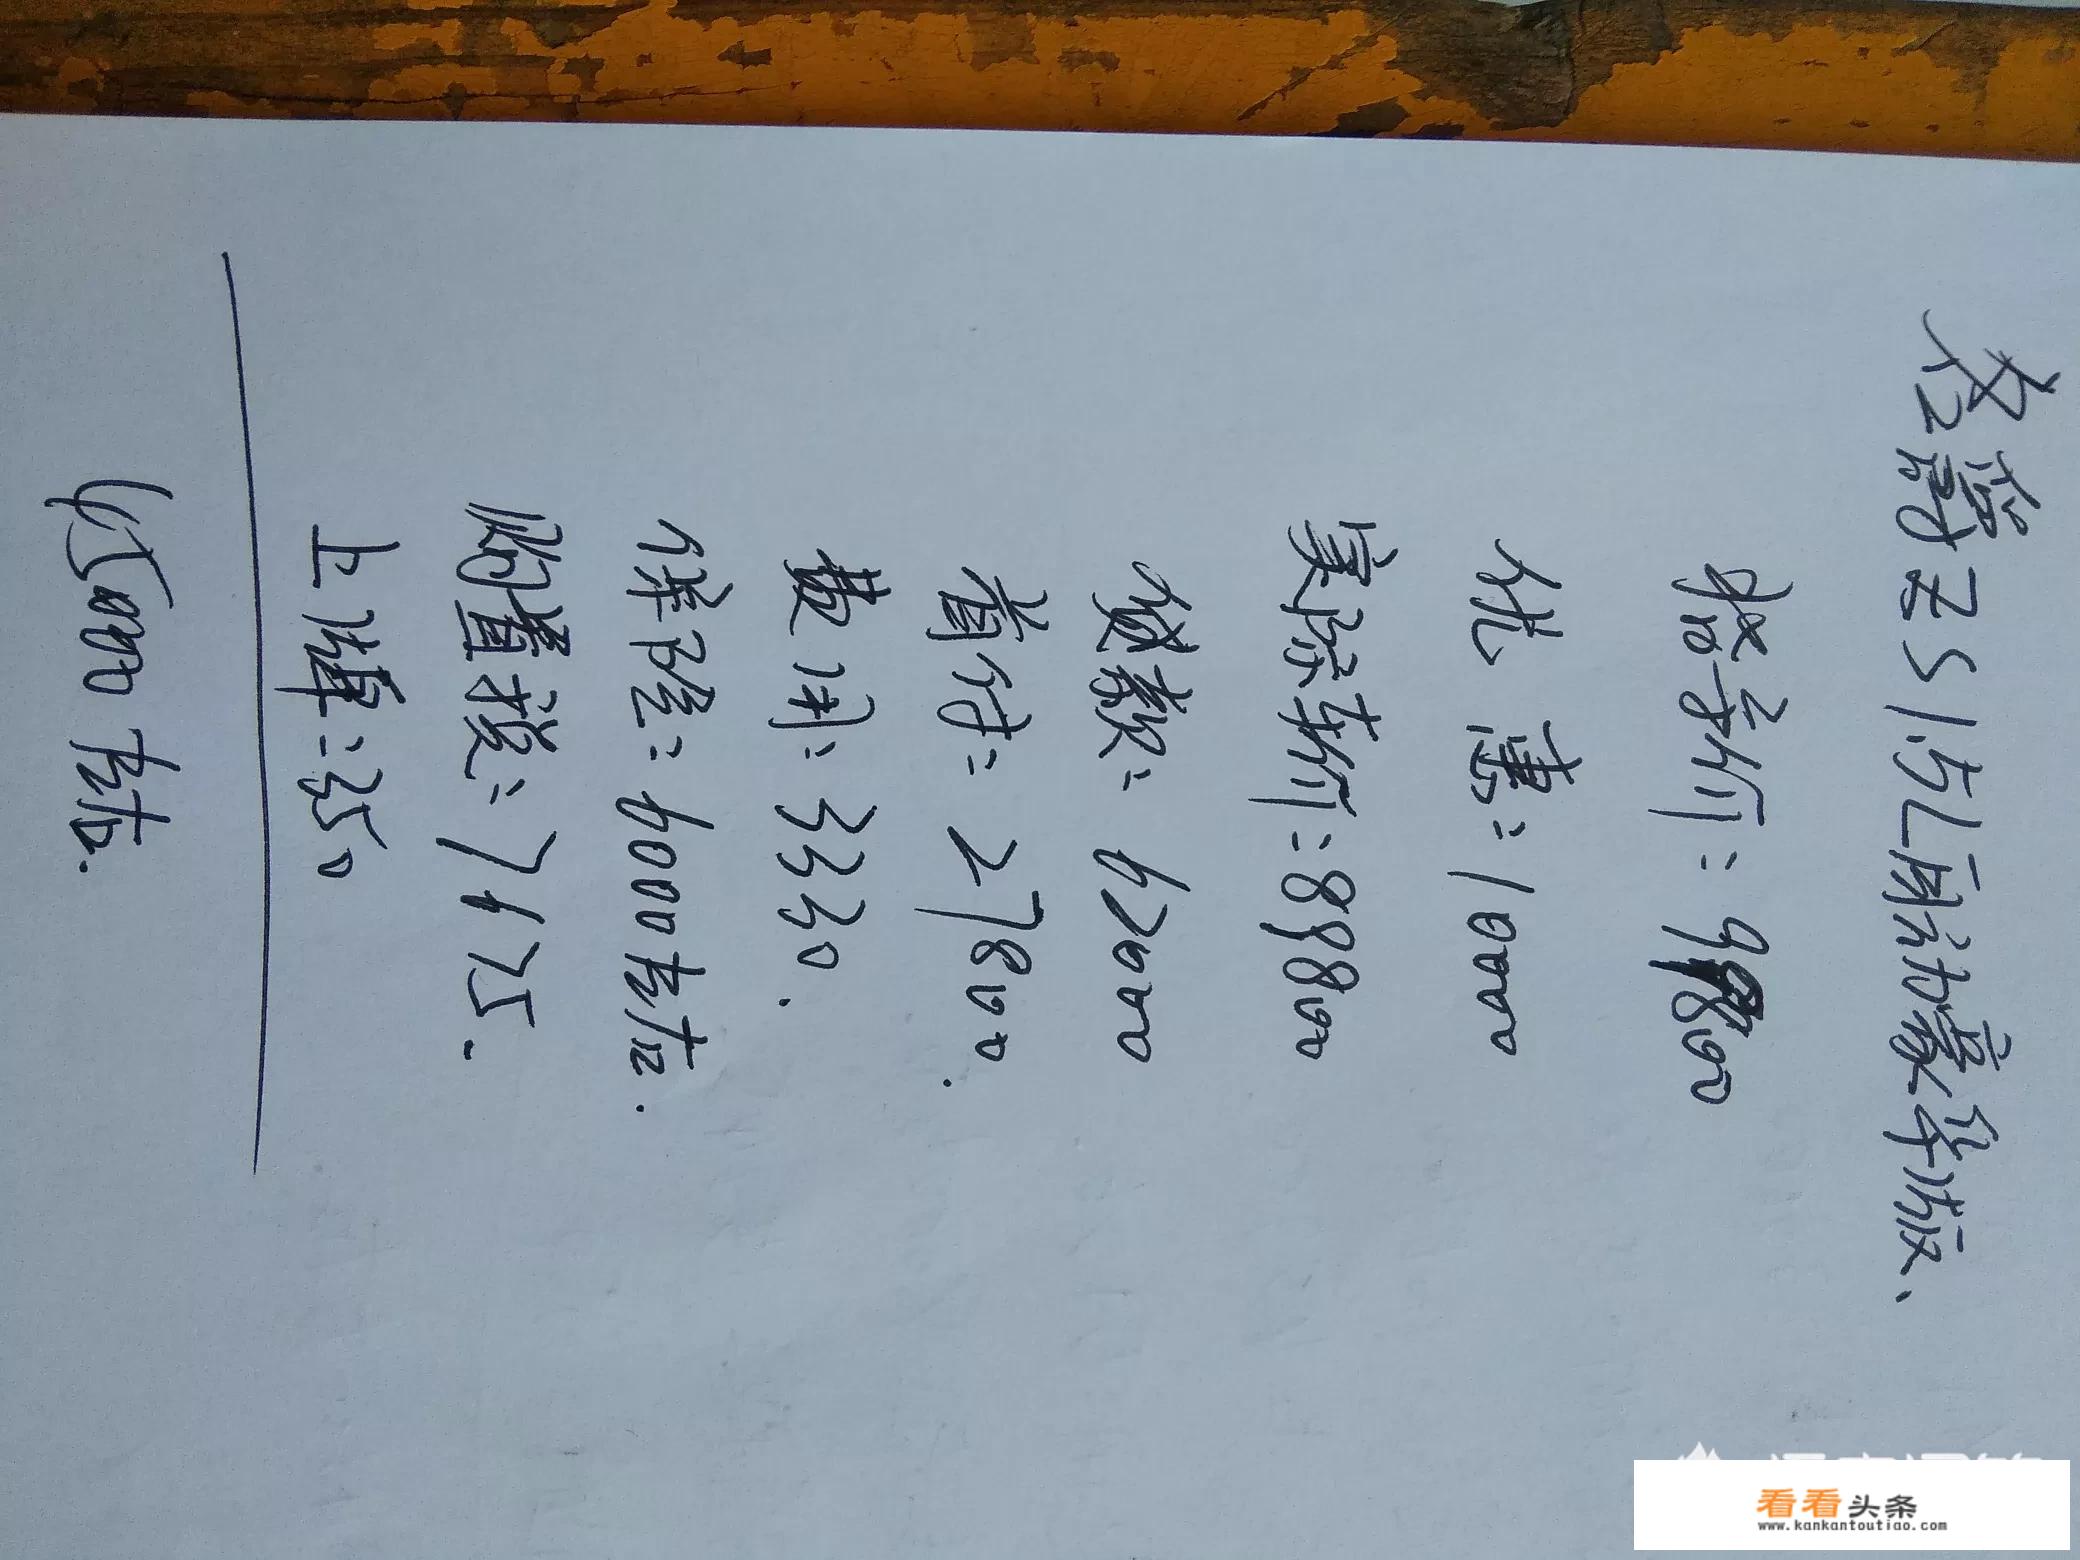 名爵ZS 1.5L自动豪华版、
指导价：99800
优惠：10000
实际车价：89800
贷款：62000
首付：27800.
费用：3330.
保险：6000左右.
购置税：7675.
上牌：350
45000左右.
看看头条
www.kankantoutiao.com